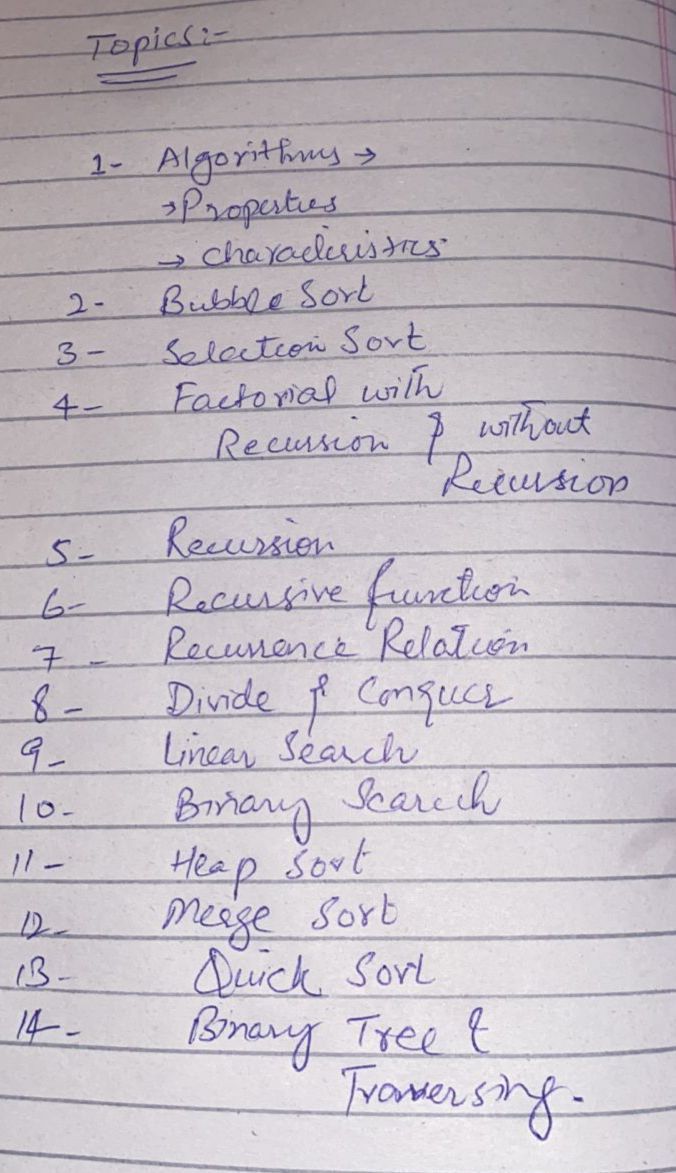 Topics:-
1- Algorithms →
→ Properties
→ characteristics
2- Bubble Sort
3- Selection Sort
4- Factorial with
Recursion & without
Recursion
5- Recursion
6- Recursive function
7- Recurrence Relation
8- Divide & Conquer
9- Linear Search
10- Binary Search
11- Heap Sort
12- Merge Sort
13- Quick Sort
14- Binary Tree &
Traversing.